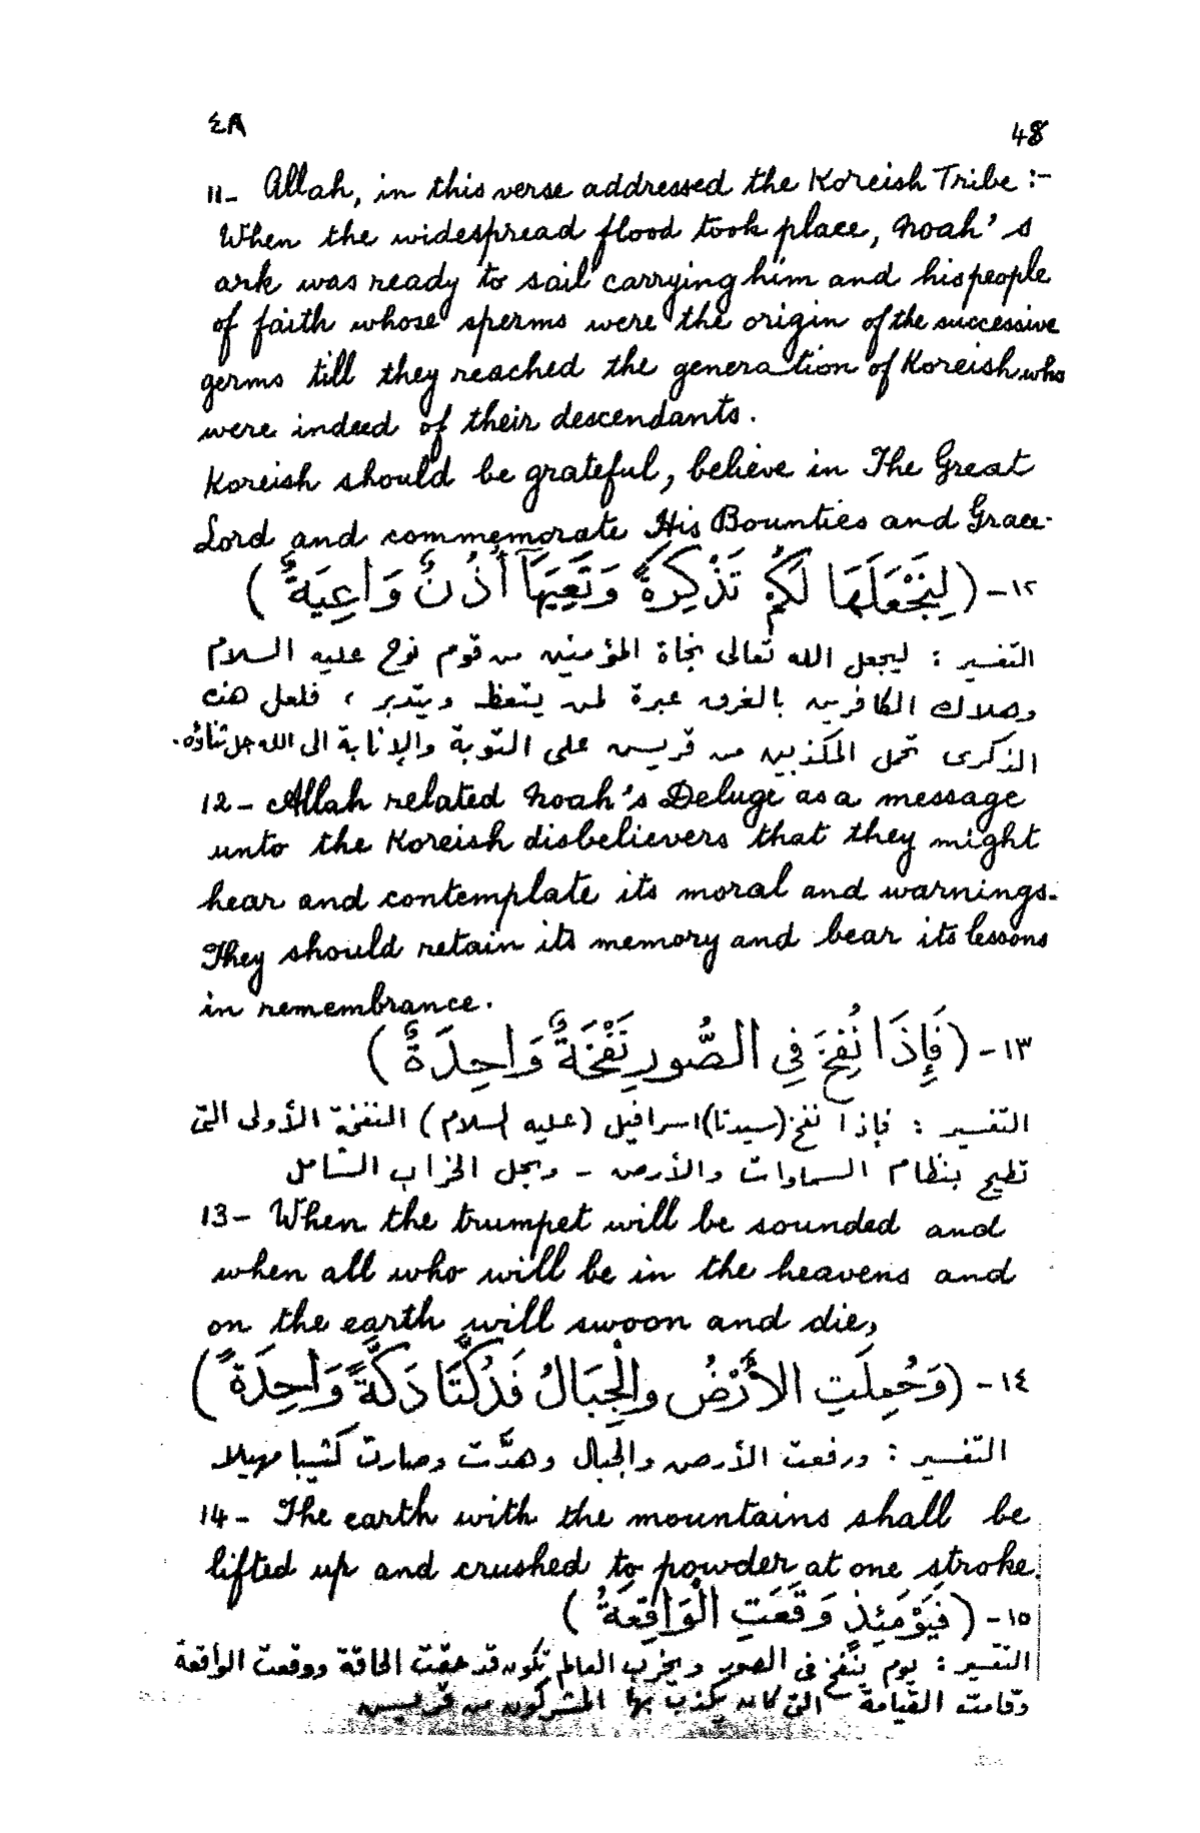 ٤٨ 48
11- Allah, in this verse addressed the Koreish Tribe :-
When the widespread flood took place, Noah's
ark was ready to sail carrying him and his people
of faith whose sperms were the origin of the successive
germs till they reached the generation of Koreish who
were indeed of their descendants.
Koreish should be grateful, believe in The Great
Lord and commemorate His Bounties and Grace.
١٢- (لِنَجْعَلَهَا لَكُمْ تَذْكِرَةً وَتَعِيَهَآ أُذُنٌ وَاعِيَةٌ)
التفسير : ليجعل الله تعالى نجاة المؤمنين من قوم نوح عليه السلام
وهلاك الكافرين بالغرق عبرة لمن يتعظ ويتدبر ، فلعل هذه
الذكرى تحمل المكذبين من قريش على التوبة والإنابة الى الله جل ثناؤه.
12- Allah related Noah's Deluge as a message
unto the Koreish disbelievers that they might
hear and contemplate its moral and warnings.
They should retain its memory and bear its lessons
in remembrance.
١٣- (فَإِذَا نُفِخَ فِي الصُّورِ نَفْخَةٌ وَاحِدَةٌ)
التفسير : فإذا نفخ (سيدنا) اسرافيل (عليه السلام) النفخة الأولى التى
تطيح بنظام السماوات والأرض - ويحل الخراب الشامل
13- When the trumpet will be sounded and
when all who will be in the heavens and
on the earth will swoon and die,
١٤- (وَحُمِلَتِ الأَرْضُ والْجِبَالُ فَدُكَّتَا دَكَّةً وَاحِدَةً)
التفسير : ورفعت الأرض والجبال وهدَّت وصارت كثيبا مهيلا
14- The earth with the mountains shall be
lifted up and crushed to powder at one stroke.
١٥- (فَيَوْمَئِذٍ وَقَعَتِ الْوَاقِعَةُ)
التفسير : يوم يُنفخ فى الصور ويخرب العالم تكون قد حقت الحاقة ووقعت الواقعة
وقامت القيامة التى كان يكذب بها المشركون من قريش